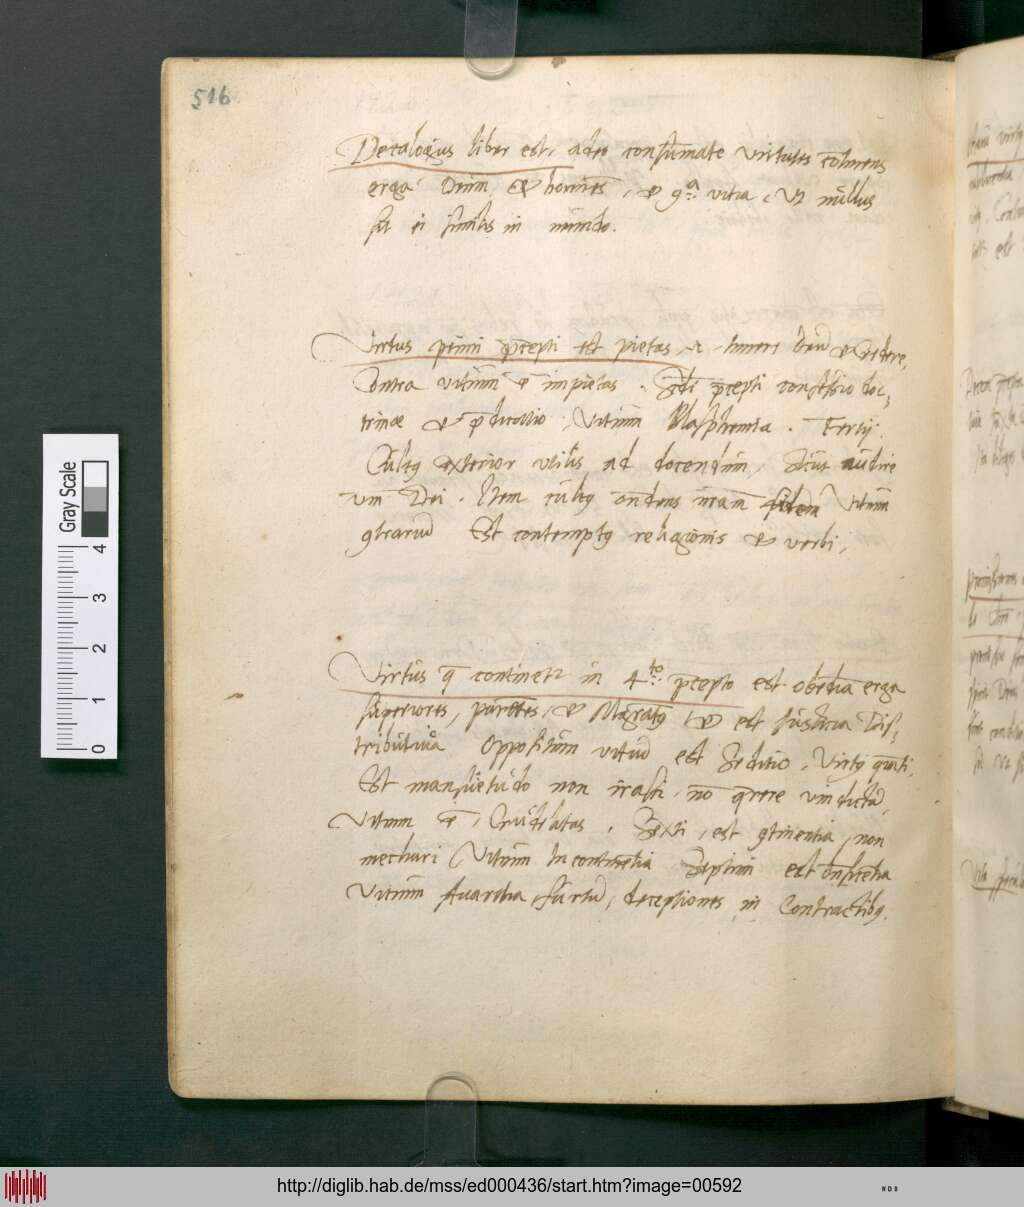 516
Decalogus liber est, adeo consumate virtutes continens
erga Deum, & homines, & 9ª vitia, Ut nullus
sit ei similis in mundo.
Virtus primi precepti est pietas, 2. timere deum & credere,
Contra vitium ē impietas. Scdi p̄cepti confessio doc-
trinae & p̄dicatio, Vitium Blasphemia. Tertij.
Cultq exterior utilis ad docendum, audire
um Dei. Item cultq fidem Vitium
9trariū Est contemptq religionis & verbi,
Virtus q̄ continet in 4.to p̄cepto est obediā erga
superiores, parētes, & Magratq, & est Justicia Dis-
tributiva Oppositum vitiū est Seditio. Virtq quīti.
Est mansuetudo non irasci, nō q̄rere vindictā,
Vitium ē, Crudelitas. Sexti, est 9tinentia, non
mechari Vitium Incontinētia Septimi est
Vitium Avaritia, furtū, deceptiones in Contractibq.
Gray Scale
0 1 2 3 4
http://diglib.hab.de/mss/ed000436/start.htm?image=00592